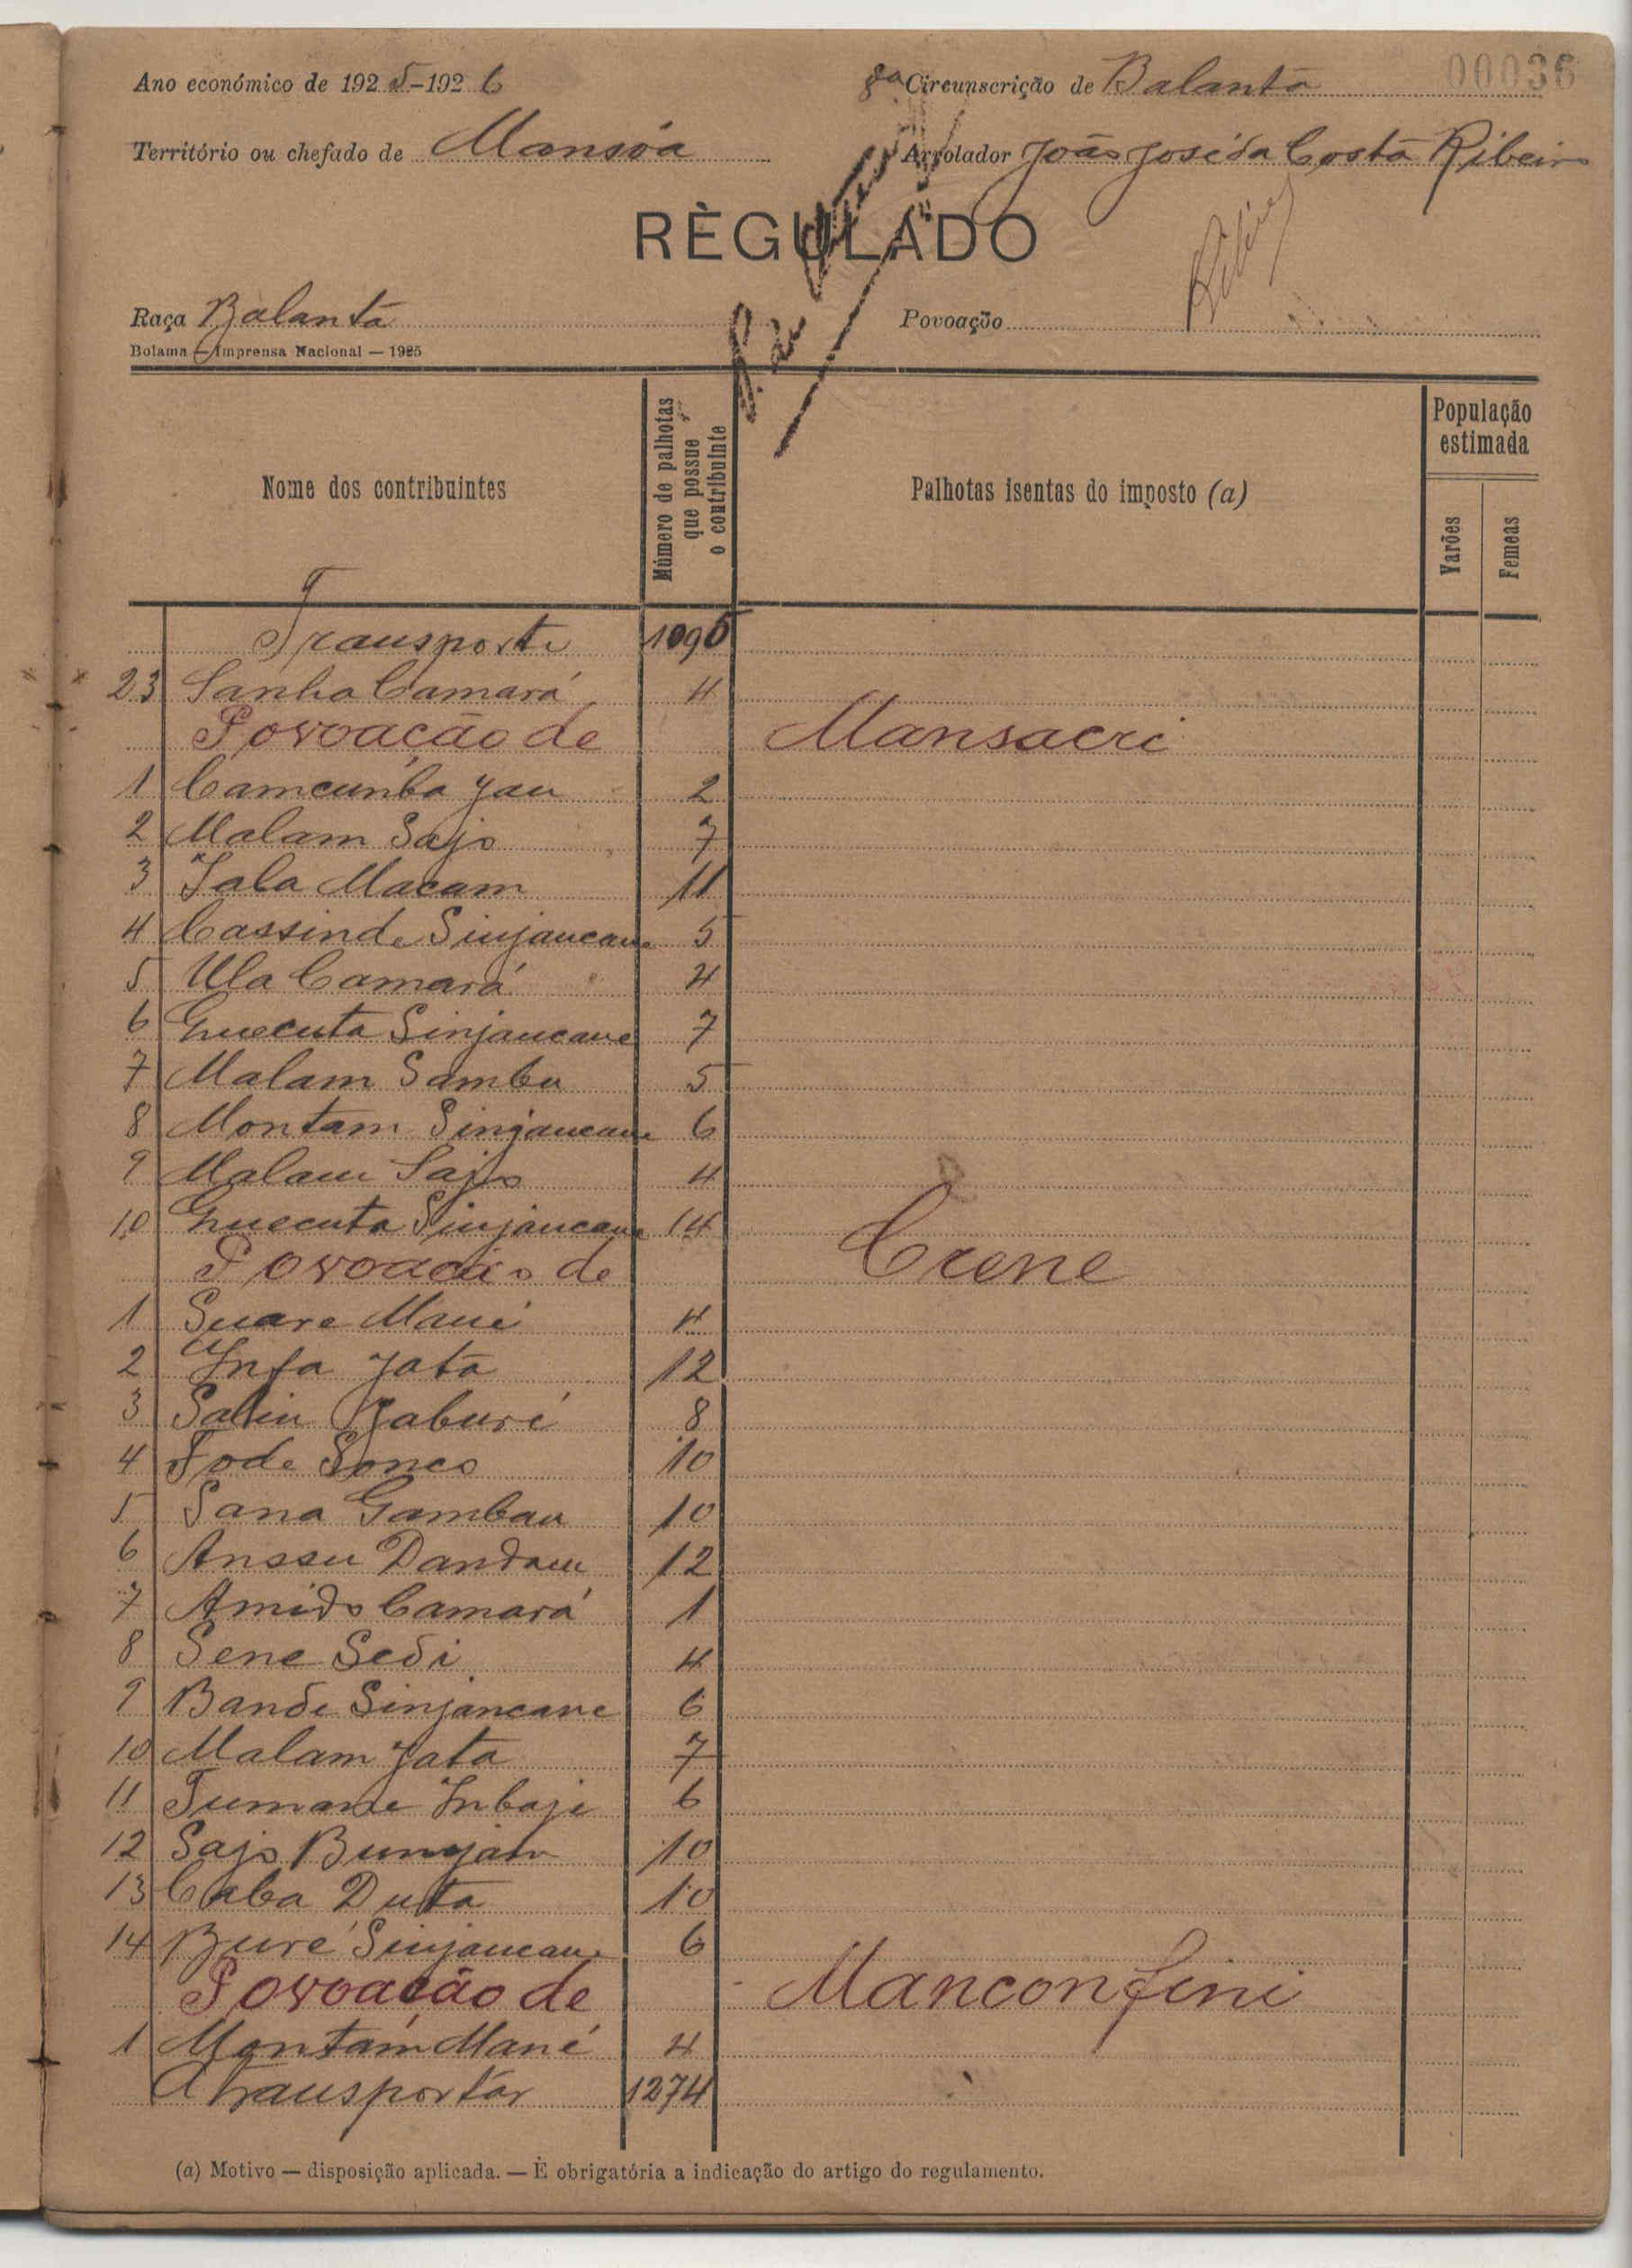 00036
Ano económico de 1925-1926
8ª Circunscrição de Balanta
Território ou chefado de Mansôa
Arrolador João José da Costa Ribeiro
RÈGULADO
Raça Balanta
Povoação
Bolama — Imprensa Nacional — 1925
Nome dos contribuintes
Número de palhotas que possue o contribuinte
Palhotas isentas do imposto (a)
População estimada
Varões
Femeas
Transporte 1096
23 Sanha Camará 4
Povoação de Mansacri
1 Camcunba Jau 2
2 Malam Sajo 7
3 Jala Macam 11
4 Cassinde Sinjancane 5
5 Ula Camará 4
6 Quecuta Sinjancane 7
7 Malam Sambu 5
8 Montam Sinjancane 6
9 Malam Sajo 4
10 Quecuta Sinjancane 14
Povoação de Crene
1 Suare Mané 4
2 Infa Jata 12
3 Saliu Jaburé 8
4 Fode Sonco 10
5 Sana Gambau 10
6 Anssu Dandam 12
7 Amido Camará 1
8 Sene Sedi 4
9 Bande Sinjancane 6
10 Malam Jata 7
11 Tumane Inbaji 6
12 Sajo Bunjam 10
13 Caba Duta 10
14 Buré Sinjancane 6
Povoação de Manconfini
1 Montam Mané 4
A transportar 1274
(a) Motivo — disposição aplicada. — É obrigatória a indicação do artigo do regulamento.